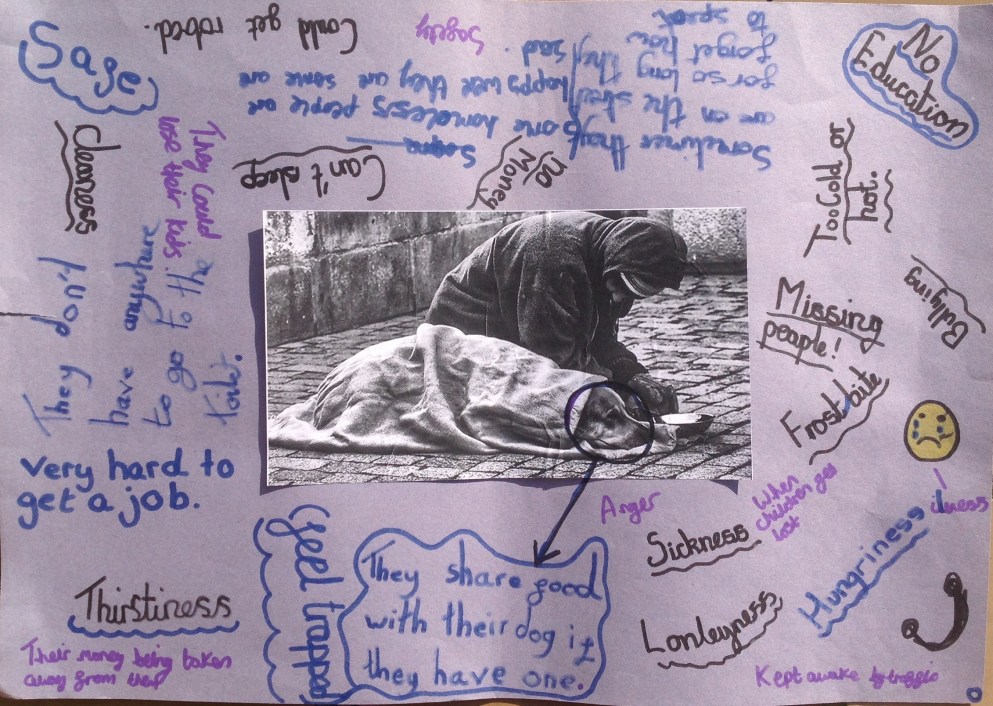 Safe
Could get robed.
Safety
Sometimes they
are on the street
for so long they
forget how
to speak
some homelesss people are
happy were they are some are
sad.
No
Education
Cleaness
They could
lose their kids!
Can't sleep
no
Money
Too Cold or
hot.
Bullying
Missing
people!
They don't
have anywhere
to go to the
toilet.
Frostbite
very hard to
get a job.
Anger
When
children get
lost
illness
Sickness
Hungriness
feel trapped
They share food
with their dog if
they have one.
Thirstiness
Lonleyness
Their money being taken
away from them
Kept awake by traffic